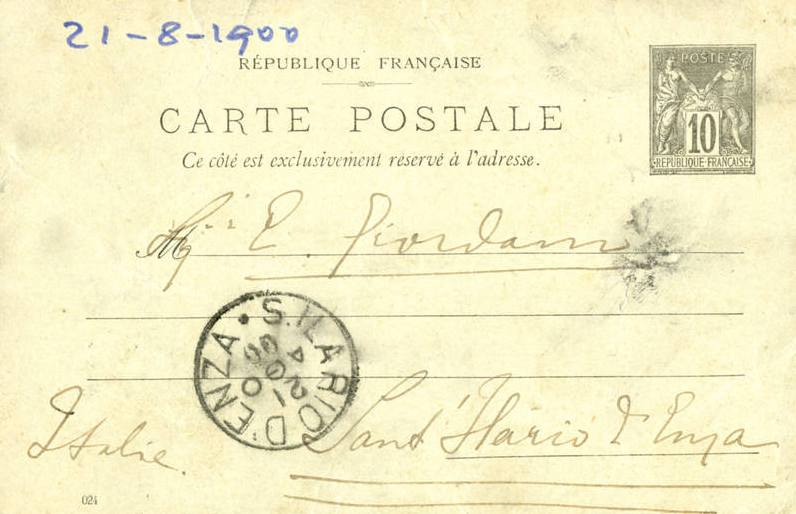 21-8-1900
RÉPUBLIQUE FRANÇAISE
CARTE POSTALE
Ce côté est exclusivement réservé à l'adresse.
POSTE
10
RÉPUBLIQUE FRANÇAISE
E. Giordani
S. ILARIO D'ENZA
21
Italie.
Sant'Ilario d'Enza
024